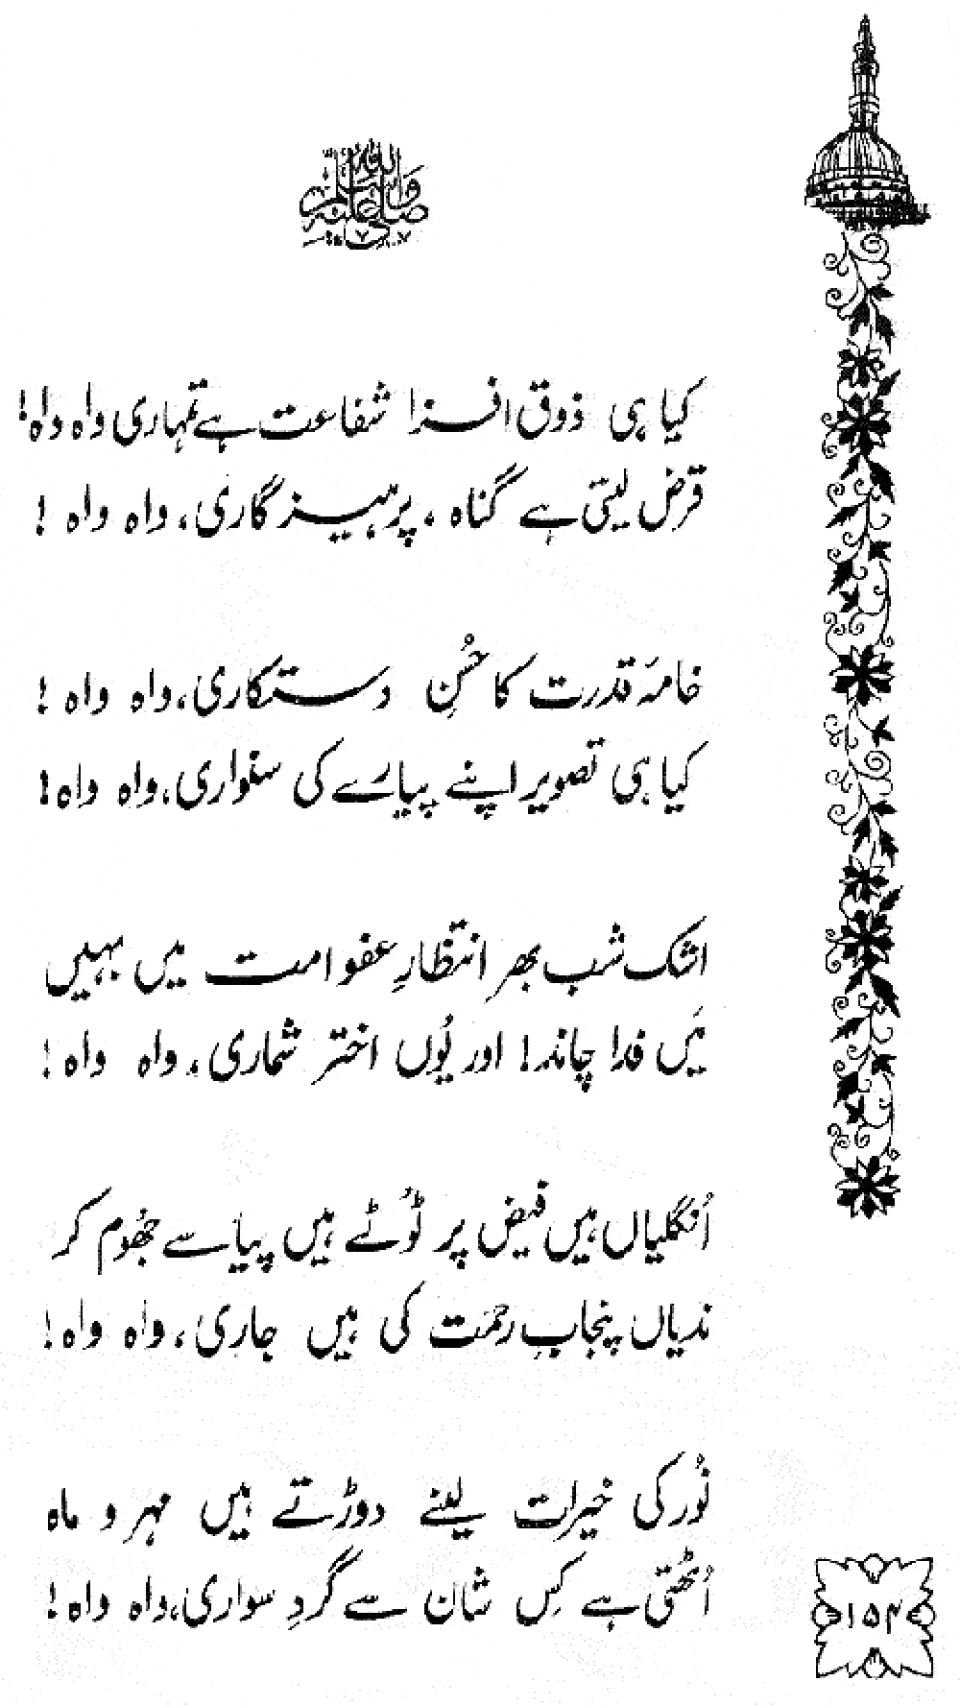 صلی اللہ علیہ وسلم
کیا ہی ذوق افزا شفاعت ہے تمہاری واہ واہ!
قرض لیتی ہے گناہ، پرہیزگاری، واہ واہ!
خامۂ قدرت کا حُسنِ دستکاری، واہ واہ!
کیا ہی تصویر اپنے پیارے کی سنواری، واہ واہ!
اشک شب بھر انتظارِ عفو امت میں بہیں
مَیں فدا چاند! اور یُوں اختر شماری، واہ واہ!
اُنگلیاں ہیں فیض پر ٹُوٹے ہیں پیاسے جھُوم کر
ندیاں پنجابِ رحمت کی ہیں جاری، واہ واہ!
نُور کی خیرات لینے دوڑتے ہیں مہر و ماہ
اُٹھتی ہے کِس شان سے گردِ سواری، واہ واہ!
۱۵۴